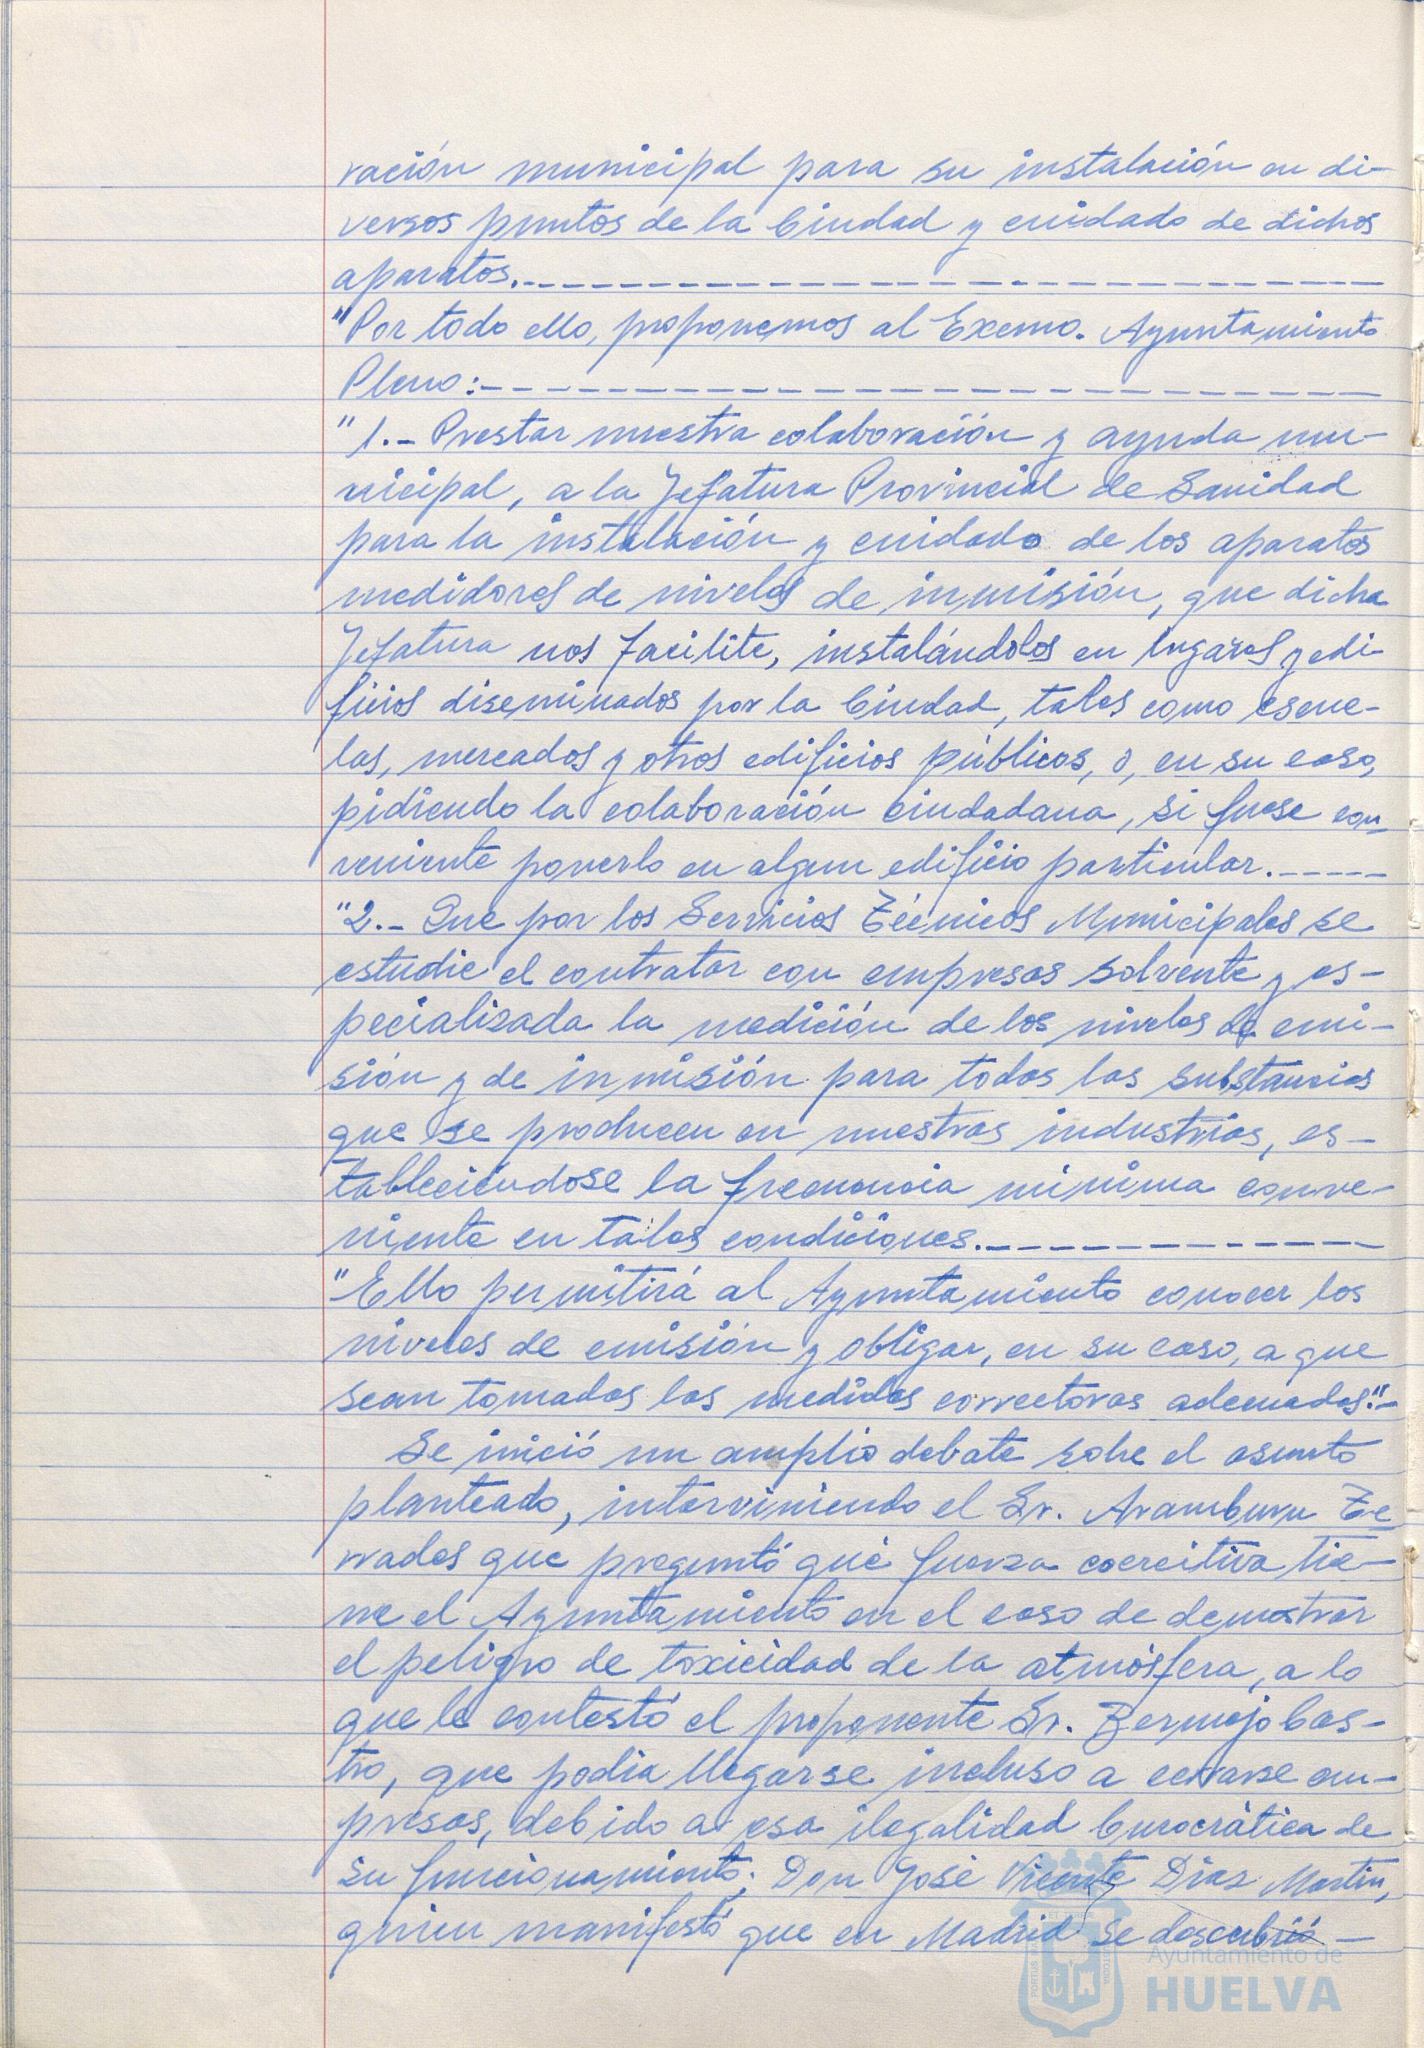 ración municipal para su instalación en di-
versos puntos de la Ciudad y cuidado de dichos
aparatos.
"Por todo ello, proponemos al Excmo. Ayuntamiento
Pleno:
"1.- Prestar nuestra colaboración y ayuda mu-
nicipal, a la Jefatura Provincial de Sanidad
para la instalación y cuidado de los aparatos
medidores de niveles de inmisión, que dicha
Jefatura nos facilite, instalándolos en lugares y edi-
ficios diseminados por la Ciudad, tales como escue-
las, mercados y otros edificios públicos, o, en su caso,
pidiendo la colaboración ciudadana, si fuese con-
veniente ponerlo en algun edificio particular.
"2.- Que por los Servicios Técnicos Municipales se
estudie el contratar con empresas solvente y es-
pecializada la medición de los niveles de emi-
sión y de inmisión para todas las substancias
que se producen en nuestras industrias, es-
tableciéndose la frecuencia mínima conve-
niente en tales condiciones.
"Ello permitirá al Ayuntamiento conocer los
niveles de emisión y obligar, en su caso, a que
sean tomadas las medidas correctoras adecuadas".-
Se inició un amplio debate sobre el asunto
planteado, interviniendo el Sr. Aramburu Te-
rrades que preguntó qué fuerza coercitiva tie-
ne el Ayuntamiento en el caso de demostrar
el peligro de toxicidad de la atmósfera, a lo
que le contestó el proponente Sr. Bermejo Cas-
tro, que podía llegarse incluso a cerrarse em-
presas, debido a esa ilegalidad burocrática de
su funcionamiento; Don José Vicente Díaz Martin,
quien manifestó que en Madrid se descubrió -
Ayuntamiento de
HUELVA